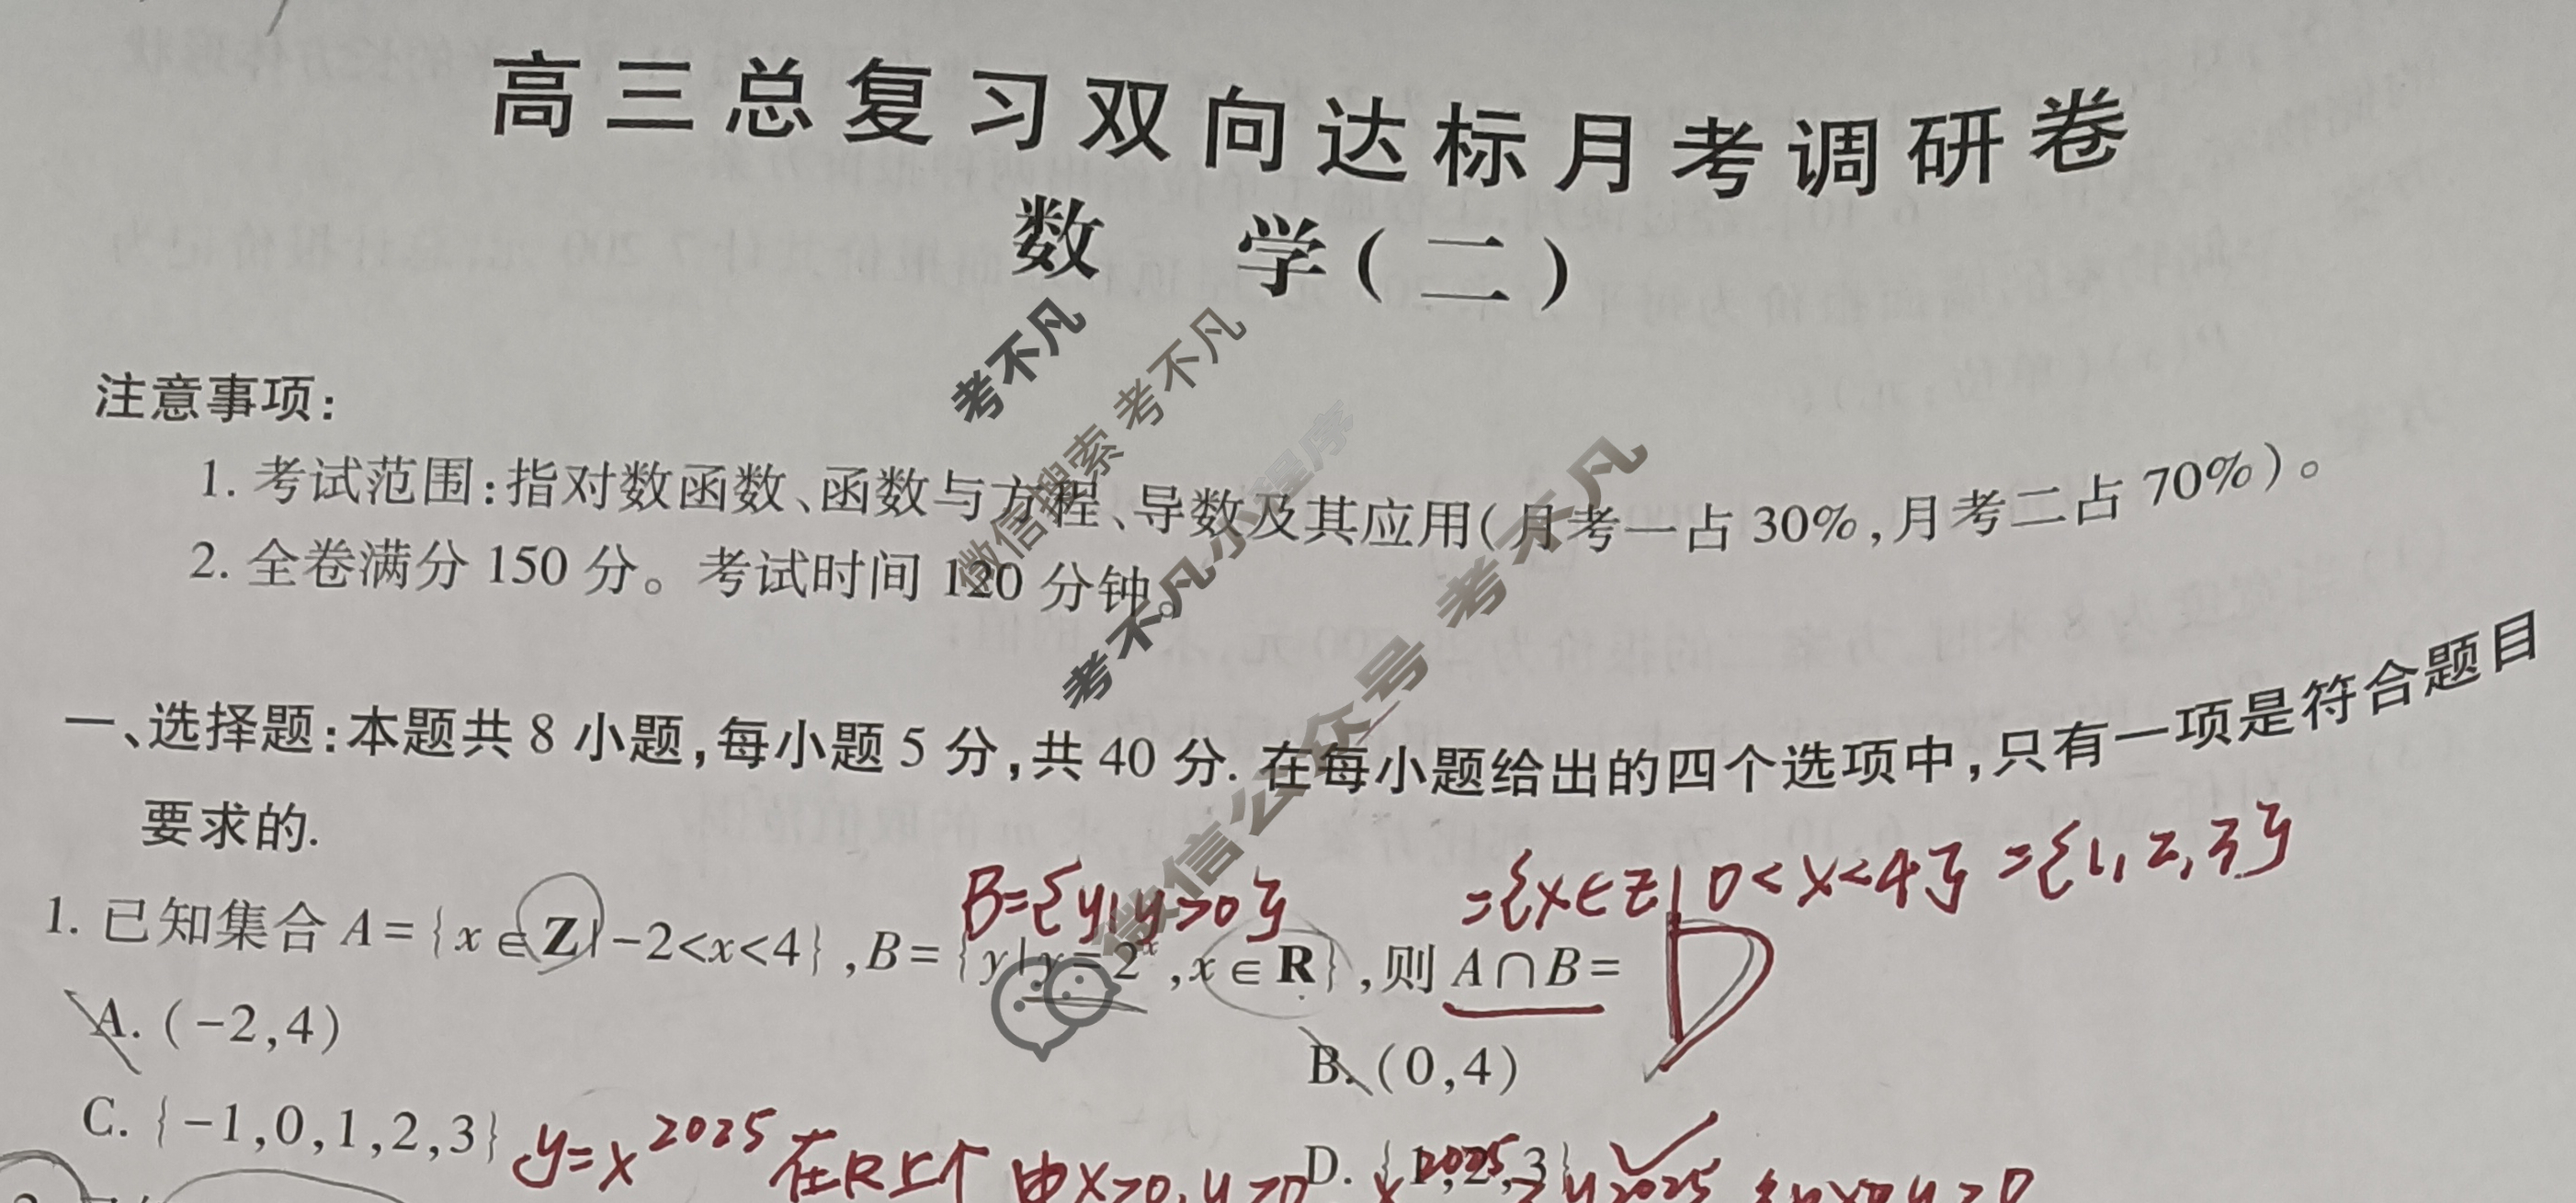 高三总复习双向达标月考调研卷
数 学(二)
注意事项:
1. 考试范围:指对数函数、函数与方程、导数及其应用(月考一占30%,月考二占70%)。
2. 全卷满分150分。考试时间120分钟。
考不凡
微信搜索 考不凡
考不凡小程序
微信公众号 考不凡
一、选择题:本题共8小题,每小题5分,共40分. 在每小题给出的四个选项中,只有一项是符合题目
要求的.
B={y|y>0} ={x∈Z|0<x<4}={1,2,3}
1. 已知集合A={x∈Z|-2<x<4},B={y|y=2^x,x∈R},则A∩B= D
A. (-2,4)
B. (0,4)
C. {-1,0,1,2,3}
D. {1,2,3}
y=x^2025在R上个 由x>0,y>0